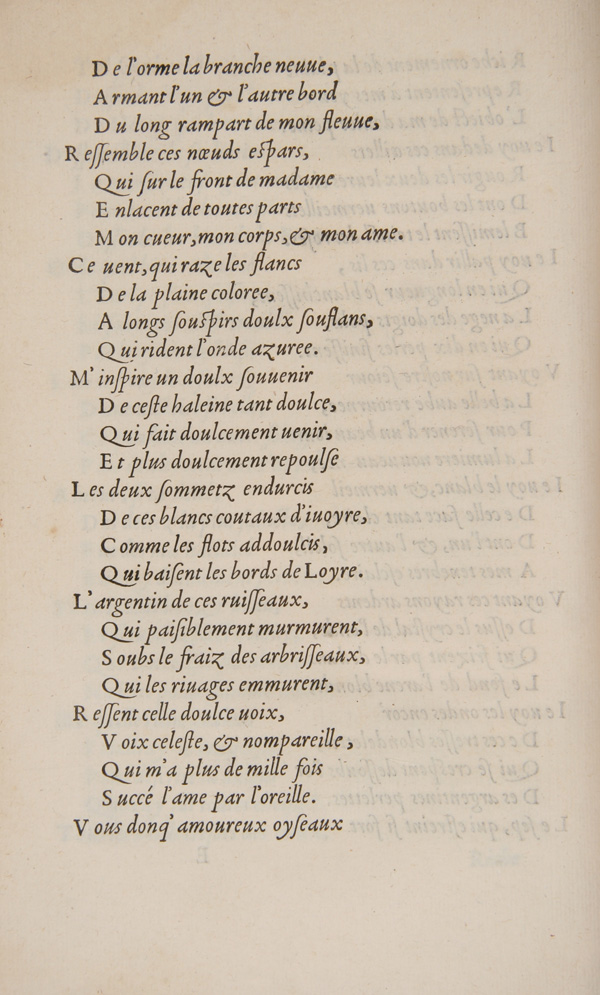 De l'orme la branche neuue,
Armant l'un & l'autre bord
Du long rampart de mon fleuue,
Reſſemble ces nœuds eſpars,
Qui ſur le front de madame
Enlacent de toutes parts
Mon cueur, mon corps, & mon ame.
Ce uent, qui raze les flancs
De la plaine coloree,
A longs ſouſpirs doulx ſouflans,
Qui rident l'onde azuree.
M'inſpire un doulx ſouuenir
De ceſte haleine tant doulce,
Qui fait doulcement uenir,
Et plus doulcement repoulſe
Les deux ſommetz endurcis
De ces blancs coutaux d'iuoyre,
Comme les flots addoulcis,
Qui baiſent les bords de Loyre.
L'argentin de ces ruiſſeaux,
Qui paiſiblement murmurent,
Soubs le fraiz des arbriſſeaux,
Qui les riuages emmurent,
Reſſent celle doulce uoix,
Voix celeſte, & nompareille,
Qui m'a plus de mille fois
Succé l'ame par l'oreille.
Vous donq' amoureux oyſeaux